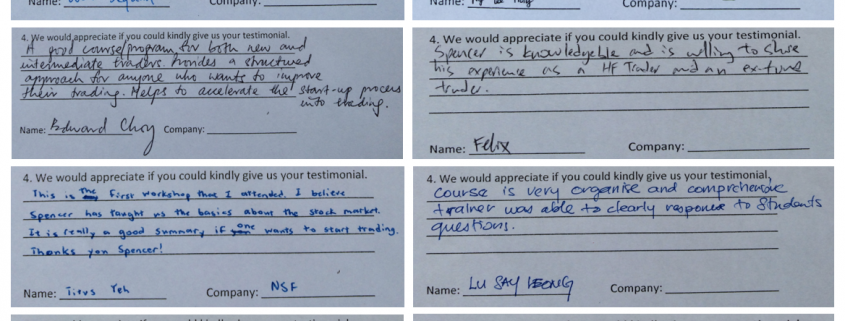 Name:
Company:
Name:
Company:
4. We would appreciate if you could kindly give us your testimonial.
A good course/program for both new and
intermediate traders. Provides a structured
approach for anyone who wants to improve
their trading. Helps to accelerate the start-up process
into trading.
Name: Edward Choy Company:
4. We would appreciate if you could kindly give us your testimonial.
Spencer is knowledgeble and is willing to share
his experience as a HF Trader and an
trader.
Name: Felix Company:
4. We would appreciate if you could kindly give us your testimonial.
This is the First workshop that I attended. I believe
Spencer has taught us the basics about the stock market.
It is really a good summary if one wants to start trading.
Thanks you Spencer!
Name: Titus Yeh Company: NSF
4. We would appreciate if you could kindly give us your testimonial,
Course is very organise and comprehensive
trainer was able to clearly response to Students
questions.
Name: LU SAY LEONG Company: